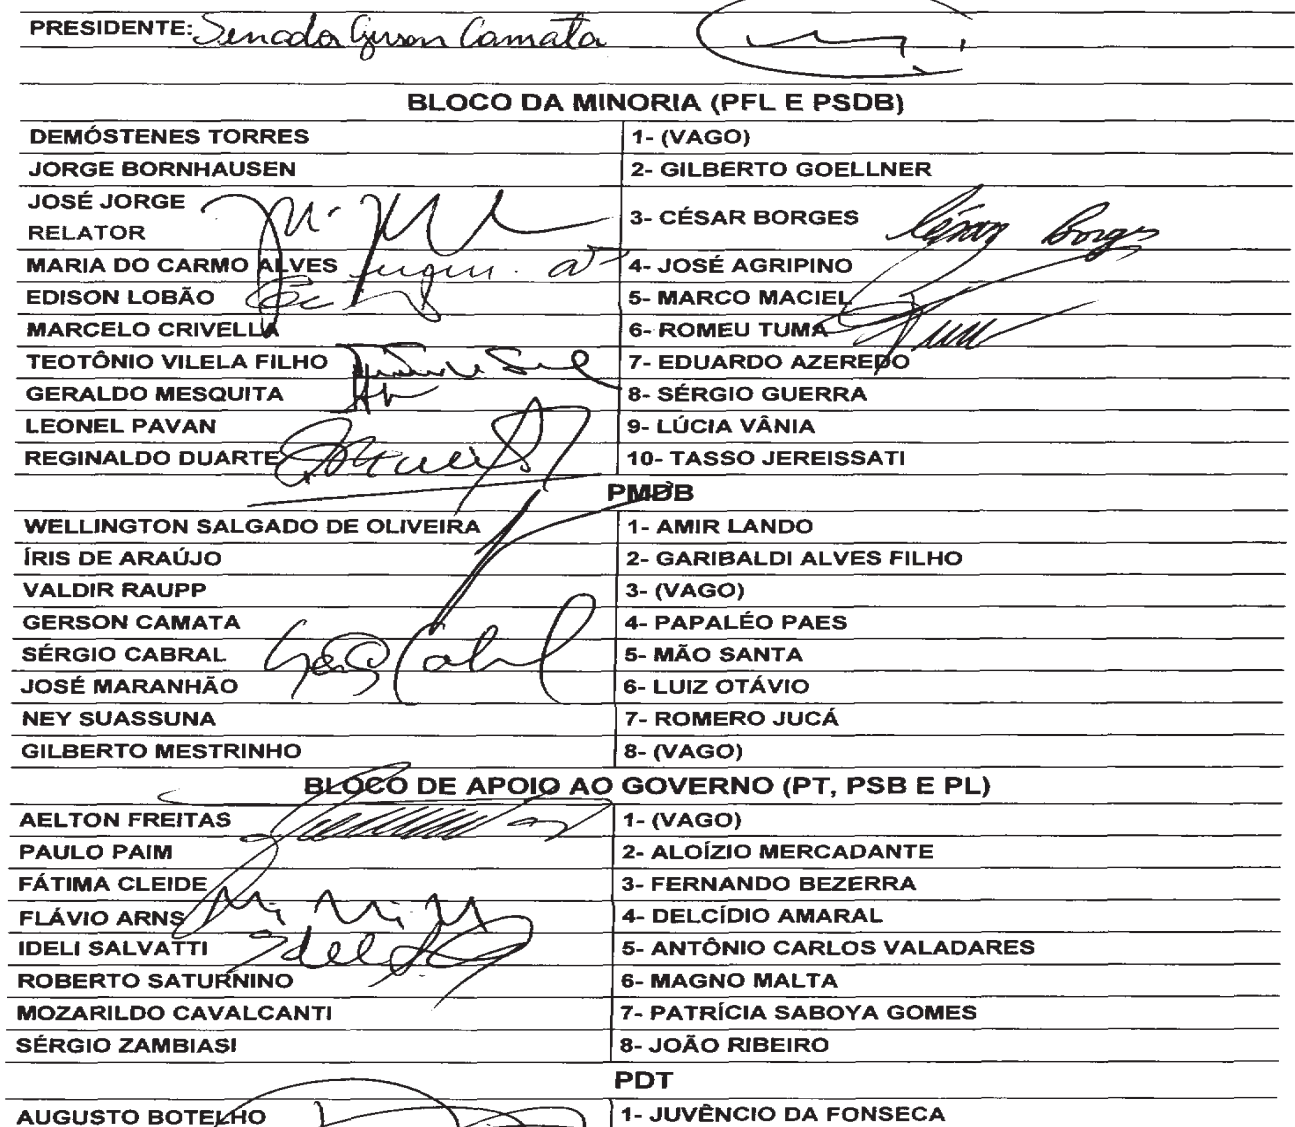 PRESIDENTE: Senador Gerson Camata
BLOCO DA MINORIA (PFL E PSDB)
DEMÓSTENES TORRES 1- (VAGO)
JORGE BORNHAUSEN 2- GILBERTO GOELLNER
JOSÉ JORGE
RELATOR 3- CÉSAR BORGES César Borges
MARIA DO CARMO ALVES 4- JOSÉ AGRIPINO
EDISON LOBÃO 5- MARCO MACIEL
MARCELO CRIVELLA 6- ROMEU TUMA
TEOTÔNIO VILELA FILHO 7- EDUARDO AZEREDO
GERALDO MESQUITA 8- SÉRGIO GUERRA
LEONEL PAVAN 9- LÚCIA VÂNIA
REGINALDO DUARTE 10- TASSO JEREISSATI
PMDB
WELLINGTON SALGADO DE OLIVEIRA 1- AMIR LANDO
ÍRIS DE ARAÚJO 2- GARIBALDI ALVES FILHO
VALDIR RAUPP 3- (VAGO)
GERSON CAMATA 4- PAPALÉO PAES
SÉRGIO CABRAL 5- MÃO SANTA
JOSÉ MARANHÃO 6- LUIZ OTÁVIO
NEY SUASSUNA 7- ROMERO JUCÁ
GILBERTO MESTRINHO 8- (VAGO)
BLOCO DE APOIO AO GOVERNO (PT, PSB E PL)
AELTON FREITAS 1- (VAGO)
PAULO PAIM 2- ALOÍZIO MERCADANTE
FÁTIMA CLEIDE 3- FERNANDO BEZERRA
FLÁVIO ARNS 4- DELCÍDIO AMARAL
IDELI SALVATTI 5- ANTÔNIO CARLOS VALADARES
ROBERTO SATURNINO 6- MAGNO MALTA
MOZARILDO CAVALCANTI 7- PATRÍCIA SABOYA GOMES
SÉRGIO ZAMBIASI 8- JOÃO RIBEIRO
PDT
AUGUSTO BOTELHO 1- JUVÊNCIO DA FONSECA